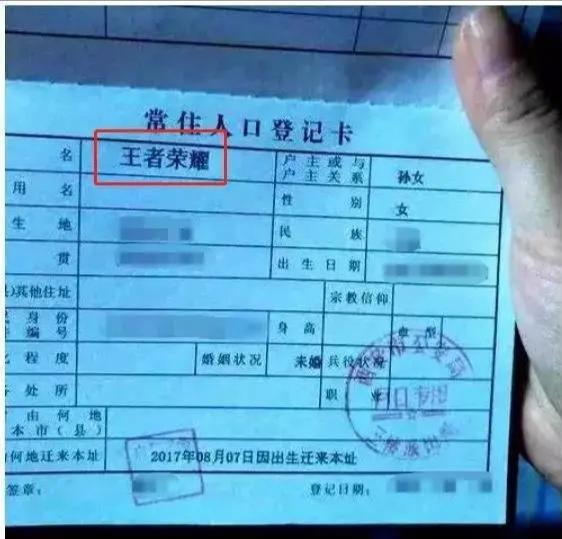 常住人口登记卡
名 王者荣耀 户主或与户主关系 孙女
用名 性别 女
生地 民族
贯 出生日期
)其他住址 宗教信仰
身份
编号 身高 血型
程度 婚姻状况 未婚 兵役状况
务处所 职业
由何地
本市(县)
何地迁来本址 2017年08月07日因出生迁来本址
签章: 登记日期: